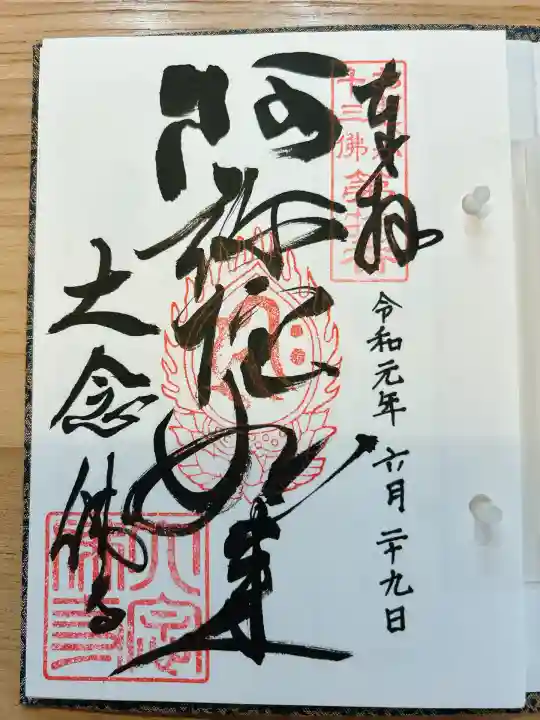 奉拝
令和元年 六月 二十九日
阿弥陀如来
大念佛寺
十三佛